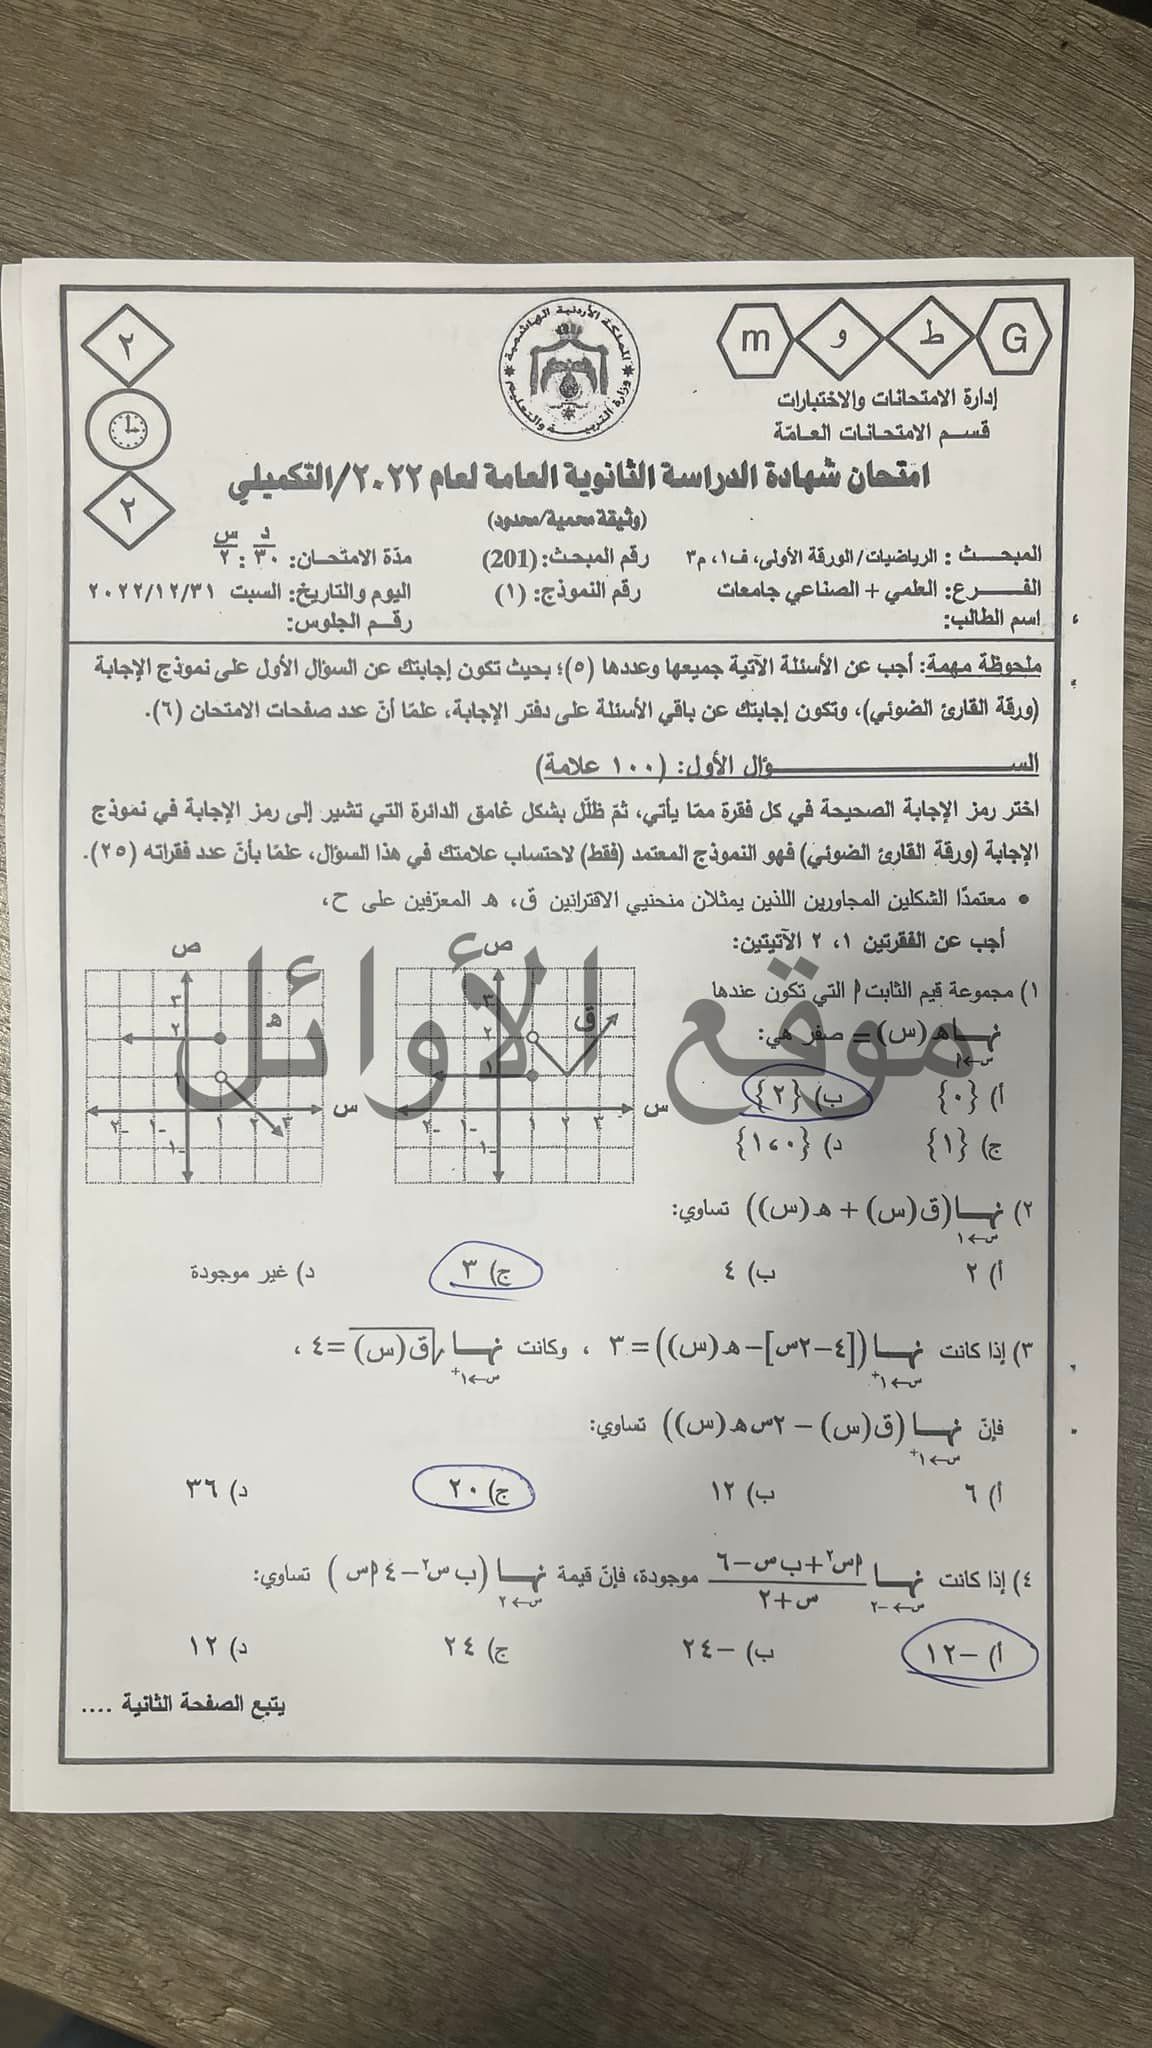 G ط و m
٢
٢
المملكة الأردنية الهاشمية
وزارة التربية والتعليم
إدارة الامتحانات والاختبارات
قسم الامتحانات العامّة
امتحان شهادة الدراسة الثانوية العامة لعام ٢٠٢٢/التكميلي
(وثيقة محمية/محدود)
المبحث : الرياضيات/الورقة الأولى، ف١، م٣ رقم المبحث: (201) مدّة الامتحان: ٣٠ : ٢ د س
الفرع: العلمي + الصناعي جامعات رقم النموذج: (١) اليوم والتاريخ: السبت ٢٠٢٢/١٢/٣١
اسم الطالب: رقم الجلوس:
ملحوظة مهمة: أجب عن الأسئلة الآتية جميعها وعددها (٥)؛ بحيث تكون إجابتك عن السؤال الأول على نموذج الإجابة
(ورقة القارئ الضوئي)، وتكون إجابتك عن باقي الأسئلة على دفتر الإجابة، علمًا أنّ عدد صفحات الامتحان (٦).
السؤال الأول: (١٠٠ علامة)
اختر رمز الإجابة الصحيحة في كل فقرة ممّا يأتي، ثمّ ظلّل بشكل غامق الدائرة التي تشير إلى رمز الإجابة في نموذج
الإجابة (ورقة القارئ الضوئي) فهو النموذج المعتمد (فقط) لاحتساب علامتك في هذا السؤال، علمًا بأنّ عدد فقراته (٢٥).
• معتمدًا الشكلين المجاورين اللذين يمثلان منحنيي الاقترانين ق، هـ المعرّفين على ح،
أجب عن الفقرتين ١، ٢ الآتيتين:
١) مجموعة قيم الثابت أ التي تكون عندها
نهــا هـ(س) = صفر هي:
س←أ
أ) {٠} ب) {٢}
ج) {١} د) {١،٠}
ص ٣ ٢ ١ ق س ٣ ٢ ١ ١- ٢- ١-
ص ٣ ٢ ١ هـ س ٣ ٢ ١ ١- ٢- ١-
موقع الأوائل
٢) نهــا (ق(س) + هـ(س)) تساوي:
س←١
أ) ٢ ب) ٤ ج) ٣ د) غير موجودة
٣) إذا كانت نهــا ([٤−٢س]−هـ(س)) = ٣ ، وكانت نهــا √ق(س) = ٤ ،
س←١+ س←١+
فإنّ نهــا (ق(س) − ٢س هـ(س)) تساوي:
س←١+
أ) ٦ ب) ١٢ ج) ٢٠ د) ٣٦
٤) إذا كانت نهــا (أس٢+ب س−٦)/(س+٢) موجودة، فإنّ قيمة نهــا (ب س٢−٤أس) تساوي:
س←−٢ س←٢
أ) −١٢ ب) −٢٤ ج) ٢٤ د) ١٢
يتبع الصفحة الثانية ....